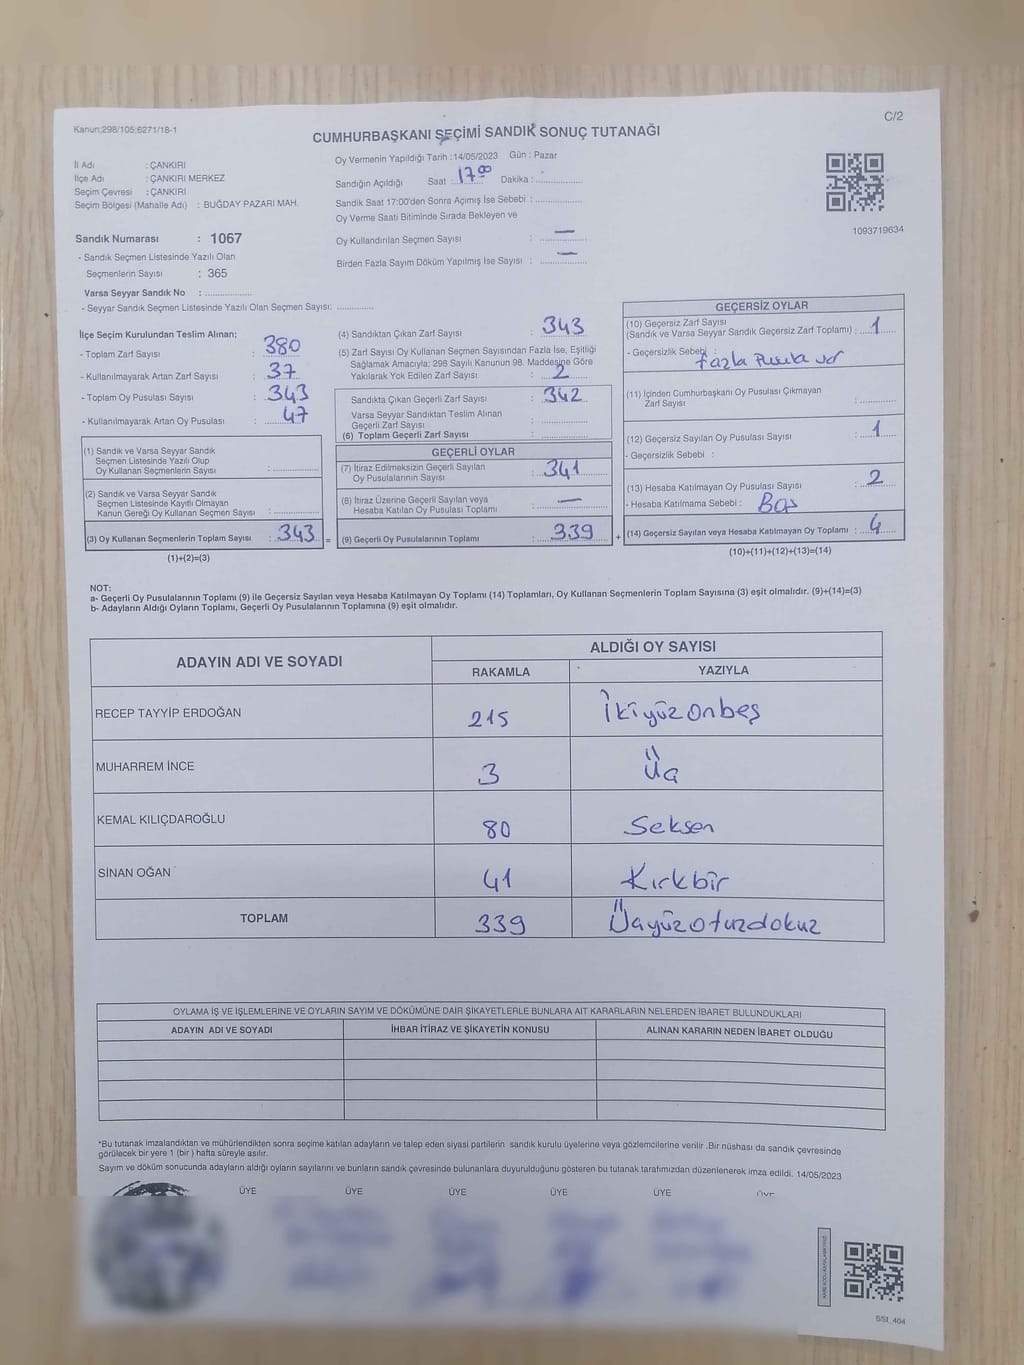 Kanun:298/105;6271/18-1
C/2
CUMHURBAŞKANI SEÇİMİ SANDIK SONUÇ TUTANAĞI
İl Adı : ÇANKIRI
İlçe Adı : ÇANKIRI MERKEZ
Seçim Çevresi : ÇANKIRI
Seçim Bölgesi (Mahalle Adı) : BUĞDAY PAZARI MAH.
Sandık Numarası : 1067
- Sandık Seçmen Listesinde Yazılı Olan
Seçmenlerin Sayısı : 365
Varsa Seyyar Sandık No : ..................
- Seyyar Sandık Seçmen Listesinde Yazılı Olan Seçmen Sayısı: ..............
Oy Vermenin Yapıldığı Tarih :14/05/2023 Gün : Pazar
Sandığın Açıldığı Saat :17.00 Dakika :..................
Sandık Saat 17:00'den Sonra Açımış İse Sebebi :..................
Oy Verme Saati Bitiminde Sırada Bekleyen ve
Oy Kullandırılan Seçmen Sayısı : —
Birden Fazla Sayım Döküm Yapılmış İse Sayısı : —
1093719634
İlçe Seçim Kurulundan Teslim Alınan;
- Toplam Zarf Sayısı : 380
- Kullanılmayarak Artan Zarf Sayısı : 37
- Toplam Oy Pusulası Sayısı : 343
- Kullanılmayarak Artan Oy Pusulası : 47
(1) Sandık ve Varsa Seyyar Sandık
Seçmen Listesinde Yazılı Olup
Oy Kullanan Seçmenlerin Sayısı :..................
(2) Sandık ve Varsa Seyyar Sandık
Seçmen Listesinde Kayıtlı Olmayan
Kanun Gereği Oy Kullanan Seçmen Sayısı :..................
(3) Oy Kullanan Seçmenlerin Toplam Sayısı : 343 =
(1)+(2)=(3)
(4) Sandıktan Çıkan Zarf Sayısı : 343
(5) Zarf Sayısı Oy Kullanan Seçmen Sayısından Fazla İse, Eşitliği
Sağlamak Amacıyla; 298 Sayılı Kanunun 98. Maddesine Göre
Yakılarak Yok Edilen Zarf Sayısı : 2
Sandıkta Çıkan Geçerli Zarf Sayısı : 342
Varsa Seyyar Sandıktan Teslim Alınan
Geçerli Zarf Sayısı :..................
(6) Toplam Geçerli Zarf Sayısı :..................
GEÇERLİ OYLAR
(7) İtiraz Edilmeksizin Geçerli Sayılan
Oy Pusulalarının Sayısı : 341
(8) İtiraz Üzerine Geçerli Sayılan veya
Hesaba Katılan Oy Pusulası Toplamı : —
(9) Geçerli Oy Pusulalarının Toplamı : 339 +
GEÇERSİZ OYLAR
(10) Geçersiz Zarf Sayısı
(Sandık ve Varsa Seyyar Sandık Geçersiz Zarf Toplamı) : 1
- Geçersizlik Sebebi :
fazla Pusula var
(11) İçinden Cumhurbaşkanı Oy Pusulası Çıkmayan
Zarf Sayısı :..................
(12) Geçersiz Sayılan Oy Pusulası Sayısı : 1
- Geçersizlik Sebebi :
(13) Hesaba Katılmayan Oy Pusulası Sayısı : 2
- Hesaba Katılmama Sebebi : Boş
(14) Geçersiz Sayılan veya Hesaba Katılmayan Oy Toplamı : 4
(10)+(11)+(12)+(13)=(14)
NOT:
a- Geçerli Oy Pusulalarının Toplamı (9) ile Geçersiz Sayılan veya Hesaba Katılmayan Oy Toplamı (14) Toplamları, Oy Kullanan Seçmenlerin Toplam Sayısına (3) eşit olmalıdır. (9)+(14)=(3)
b- Adayların Aldığı Oyların Toplamı, Geçerli Oy Pusulalarının Toplamına (9) eşit olmalıdır.
ADAYIN ADI VE SOYADI
ALDIĞI OY SAYISI
RAKAMLA YAZIYLA
RECEP TAYYİP ERDOĞAN 215 İkiyüzonbeş
MUHARREM İNCE 3 Üç
KEMAL KILIÇDAROĞLU 80 Seksen
SİNAN OĞAN 41 Kırkbir
TOPLAM 339 Üçyüzotuzdokuz
OYLAMA İŞ VE İŞLEMLERİNE VE OYLARIN SAYIM VE DÖKÜMÜNE DAİR ŞİKAYETLERLE BUNLARA AİT KARARLARIN NELERDEN İBARET BULUNDUKLARI
ADAYIN ADI VE SOYADI İHBAR İTİRAZ VE ŞİKAYETİN KONUSU ALINAN KARARIN NEDEN İBARET OLDUĞU
*Bu tutanak imzalandıktan ve mühürlendikten sonra seçime katılan adayların ve talep eden siyasi partilerin sandık kurulu üyelerine veya gözlemcilerine verilir .Bir nüshası da sandık çevresinde
görülecek bir yere 1 (bir ) hafta süreyle asılır.
Sayım ve döküm sonucunda adayların aldığı oyların sayılarını ve bunların sandık çevresinde bulunanlara duyurulduğunu gösteren bu tutanak tarafımızdan düzenlenerek imza edildi. 14/05/2023
ÜYE ÜYE ÜYE ÜYE ÜYE ÜYE
SSI_404